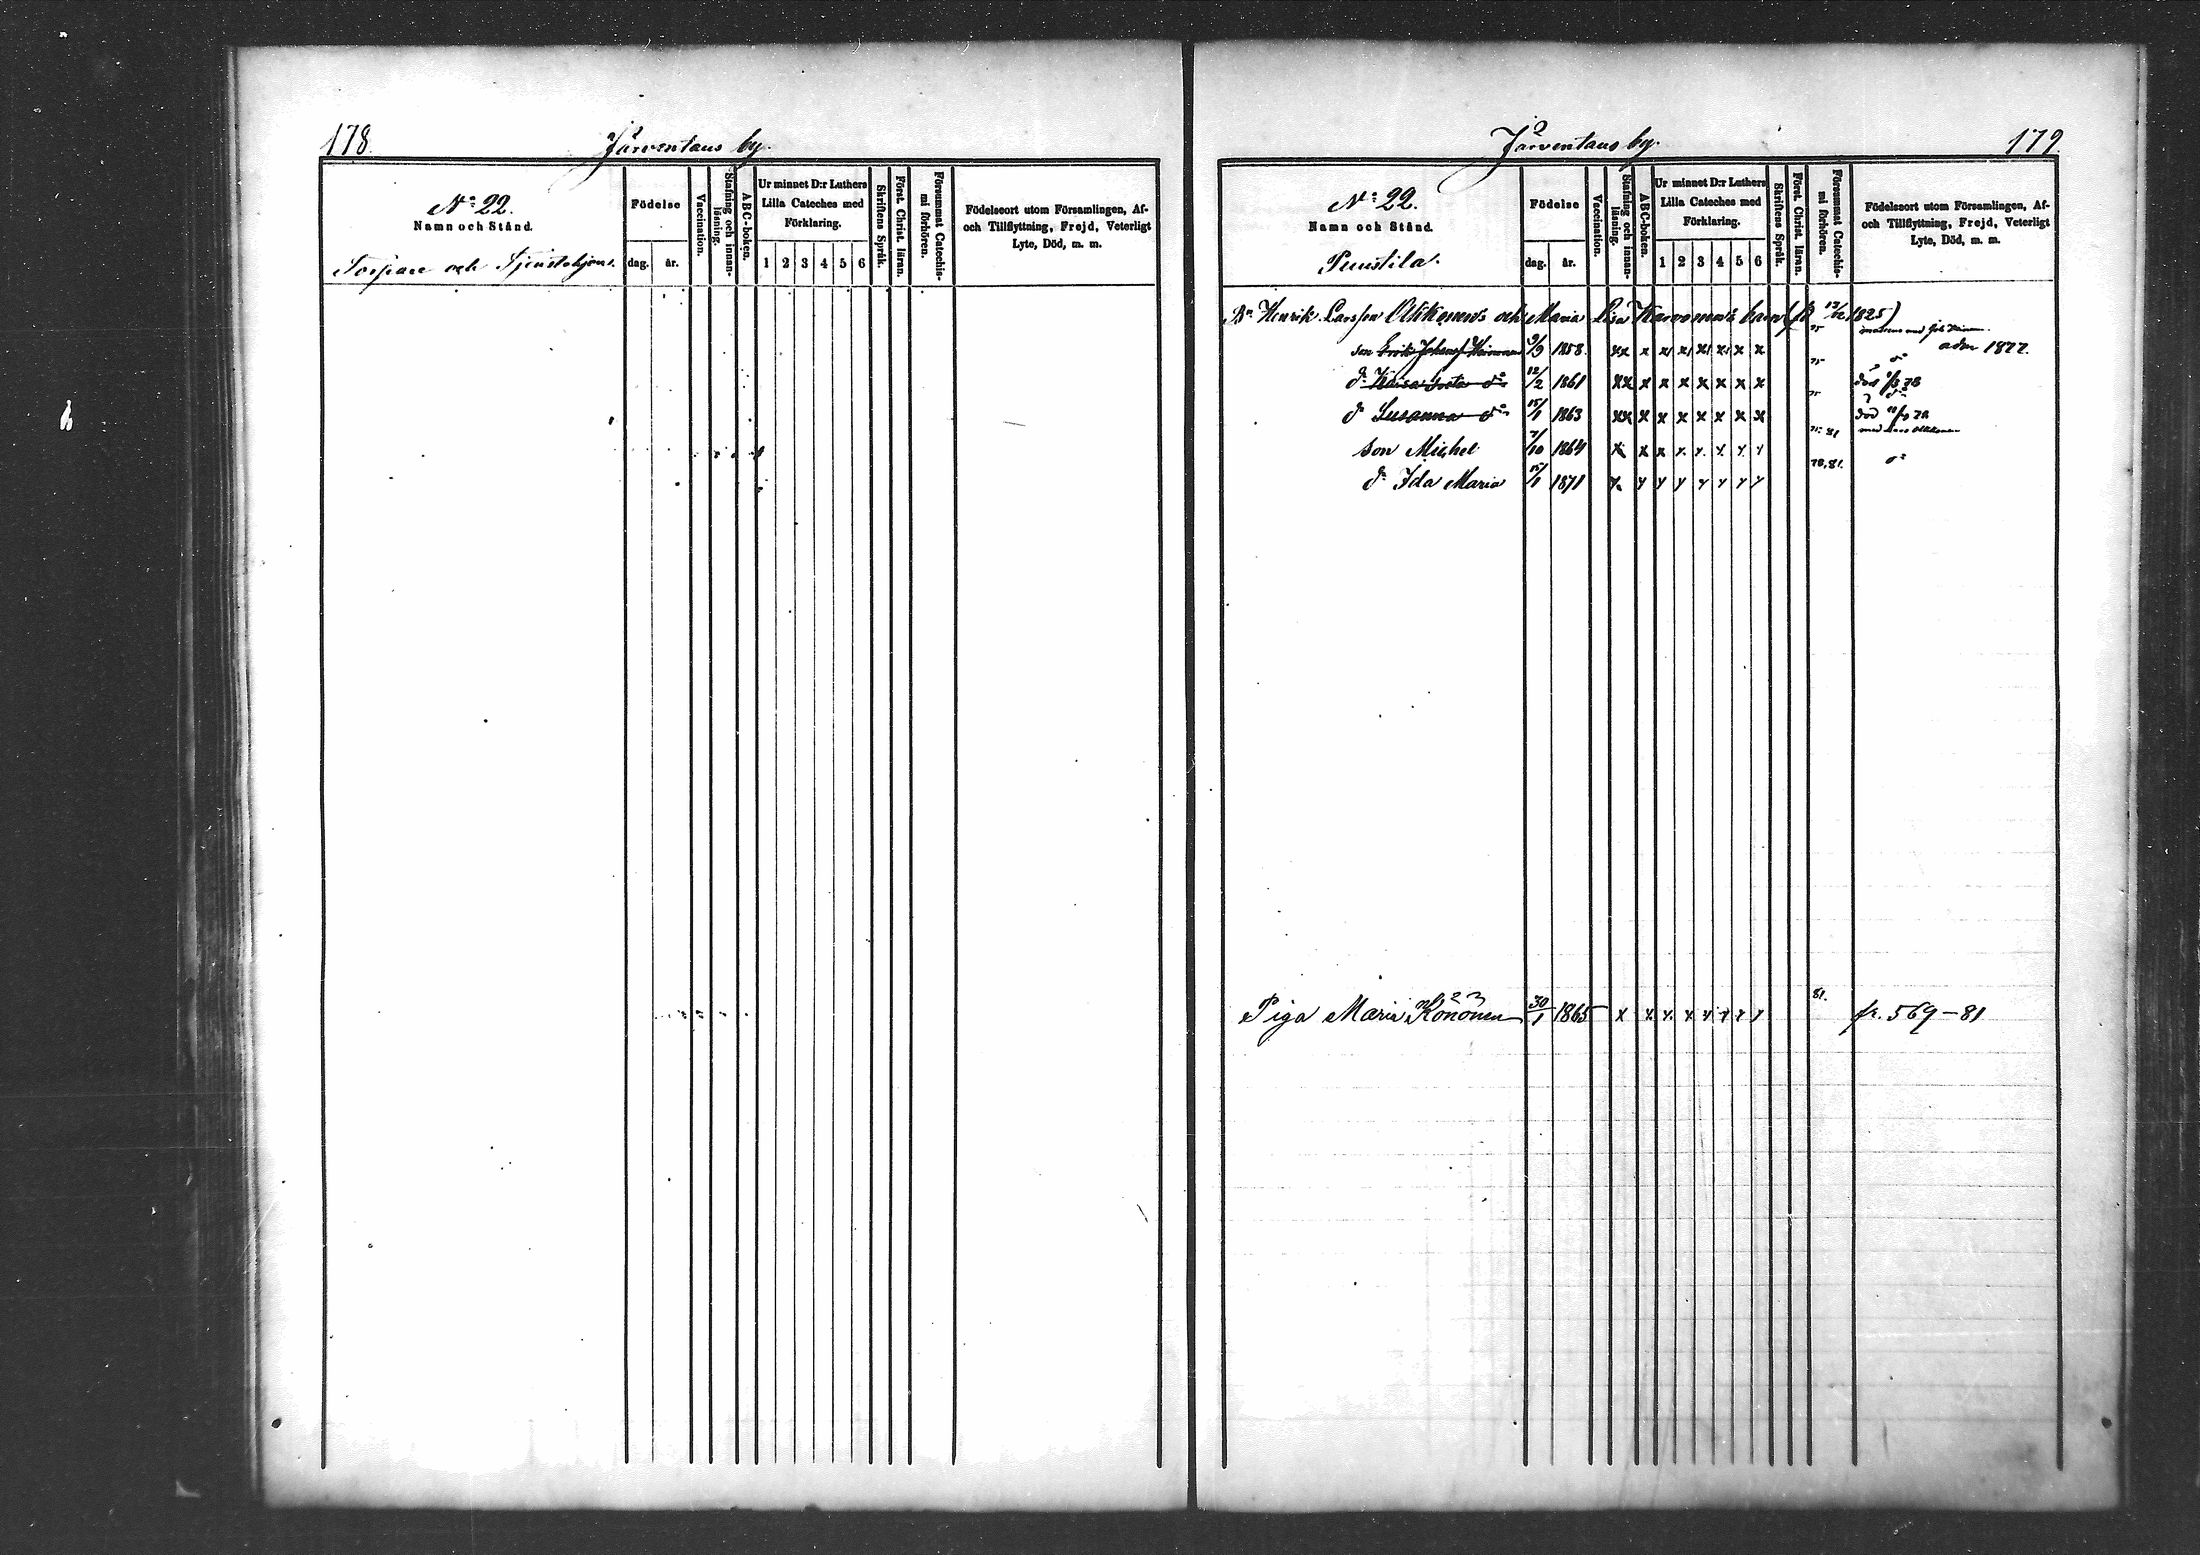 178.
Järventaus by.
No 22.
Namn och Stånd.
Torpare och Tjenstehjon.
Födelse
dag. år.
Vaccination.
Stafning och innan-läsning.
ABC-boken.
Ur minnet D:r Luthers
Lilla Cateches med
Förklaring.
1 2 3 4 5 6
Skriftens Språk.
Först. Christ. läran.
Försummat Catechis-mi förhören.
Födelseort utom Församlingen, Af-
och Tillflyttning, Frejd, Veterligt
Lyte, Död, m. m.
Järventaus by.
179.
No 22.
Namn och Stånd.
Puustila.
Födelse
dag. år.
Vaccination.
Stafning och innan-läsning.
ABC-boken.
Ur minnet D:r Luthers
Lilla Cateches med
Förklaring.
1 2 3 4 5 6
Skriftens Språk.
Först. Christ. läran.
Försummat Catechis-mi förhören.
Födelseort utom Församlingen, Af-
och Tillflyttning, Frejd, Veterligt
Lyte, Död, m. m.
Bn Henrik Larsson Olkkonens och Maria Lisa Karvonens barn (f. 12/12 1825)
son Erik Johan 9/9 1858 xx x x x x x x x 75 adm 1877.
dr Kaisa do 12/2 1861 xx x x x x x x x 75 do död 78
dr Susanna do 15/1 1863 xx x x x x x x x 75 do död 78
son Michel 7/10 1864 x x x x x x x x 75. 81 med Lars Olkkonen
dr Ida Maria 15/1 1871 x x x x x x x x 78, 81. do
Piga Maria Könönen 30/1 1865 x x x x x x x x 81. fr. 569-81